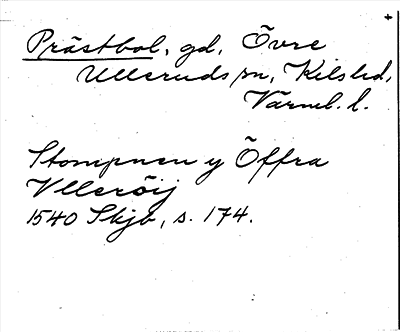 Prästbol, gd, Övre
Ulleruds sn, Kils hd,
Värml. l.
Stompnen y Öffra
Vlleröij
1540 Skjb, s. 174.